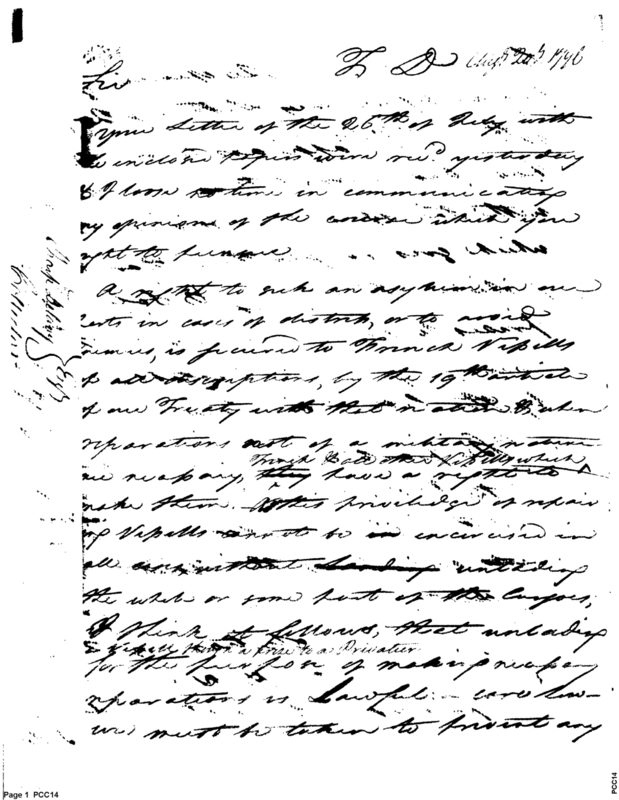 T. D. Augt. 20th 1796
Sir
your Letter of the 26th of July with
enclosed papers were recd. yesterday
& I loose no time in communicating
my opinion of the course which you
ought to pursue
A right to seek an asylum in our
Ports in cases of distress, or to avoid
enemies, is secured to French Vessells
of all descriptions, by the 19th article
of our Treaty with that nation & when
reparations not of a military nature
French & all other Vessells which
are necessary, they have a right to
make them. As this priviledge of repair
ing Vessells cannot be exercised in
all cases, without Landing unlading
the whole or some part of the Cargoes,
I think it follows, that unlading
a Vessell tho a prize to a Privateer
for the purpose of making necessary
reparations is Lawful – care how-
ever must be taken to prevent any
Page 1 PCC14
PCC14